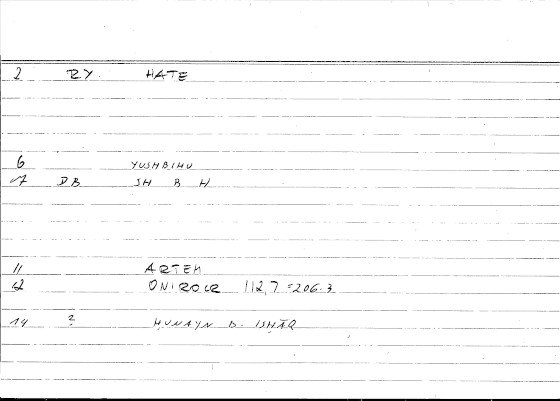 2 RY. HATE
6 YUSHBIHU
7 DB SH B H
11 ARTEM
12 ONIROCR 112,7 = 206.3
14 ? HUNAYN B. ISHĀQ